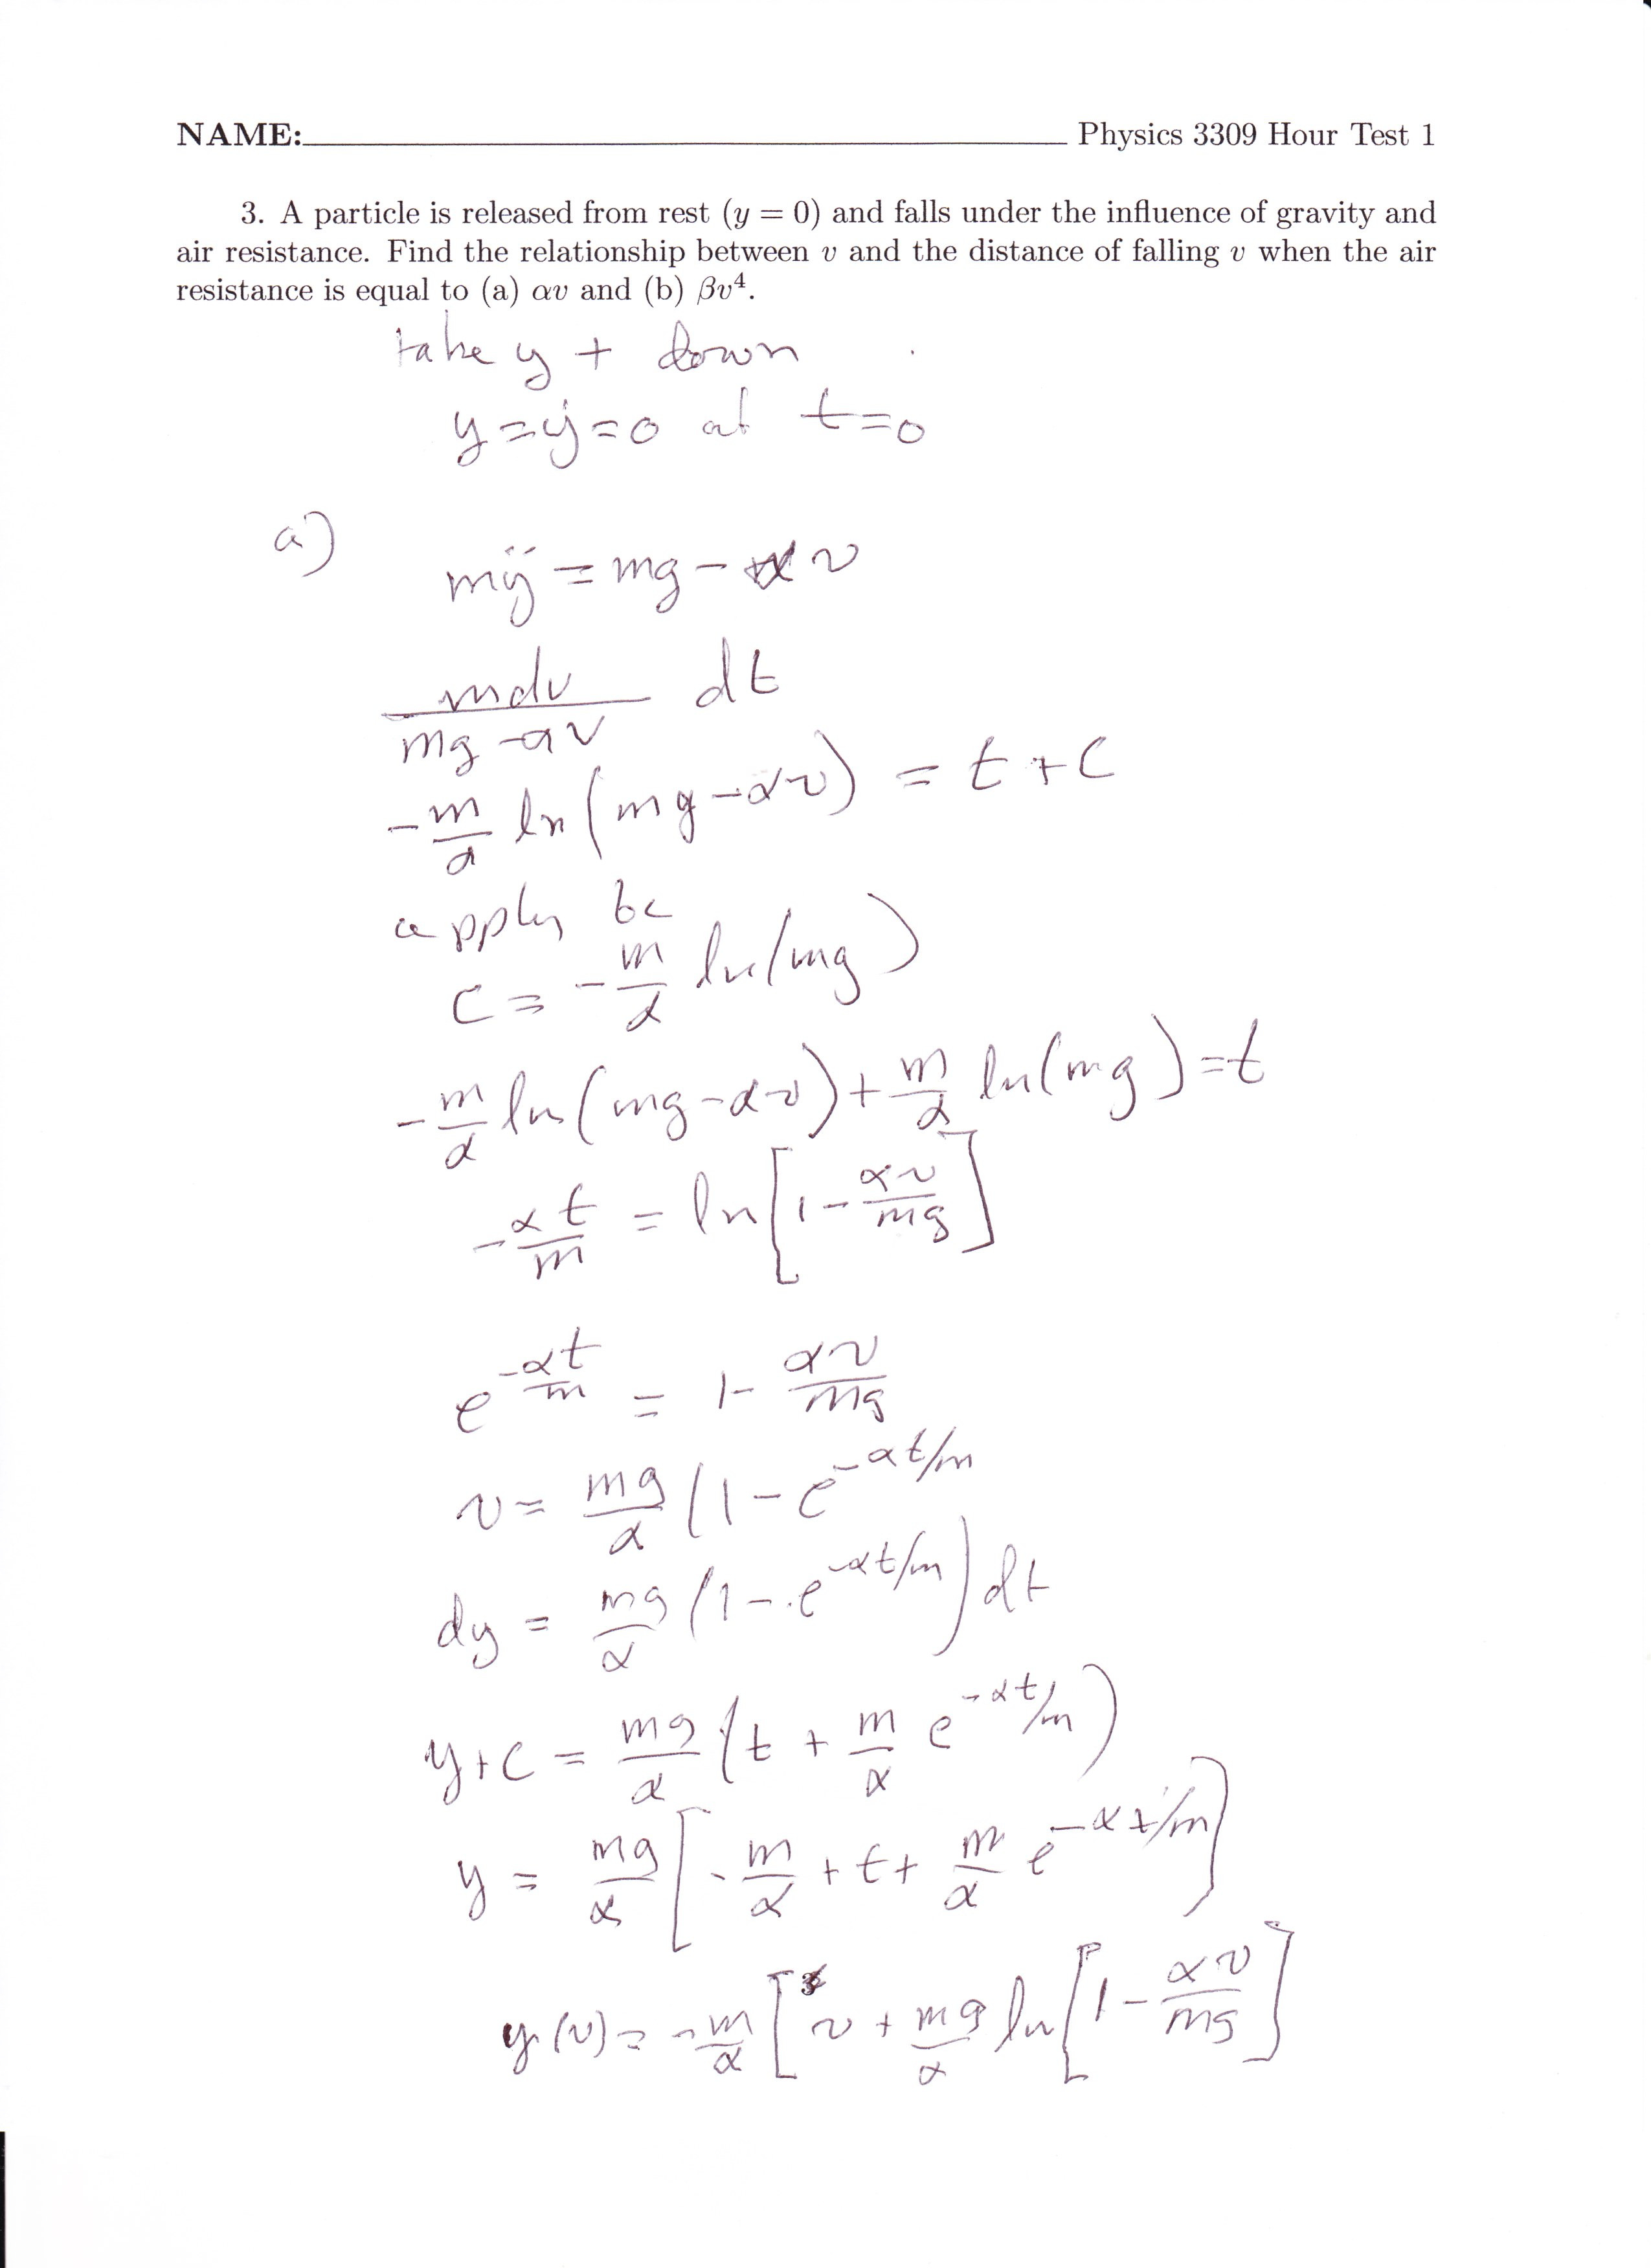 NAME: Physics 3309 Hour Test 1
3. A particle is released from rest (y = 0) and falls under the influence of gravity and
air resistance. Find the relationship between v and the distance of falling v when the air
resistance is equal to (a) αv and (b) βv⁴.
take y + down
y = ẏ = 0 at t = 0
a) mÿ = mg - αv
mdv/(mg - αv) dt
-m/α ln(mg - αv) = t + c
apply bc
c = -m/α ln(mg)
-m/α ln(mg - αv) + m/α ln(mg) = t
-αt/m = ln[1 - αv/mg]
e^(-αt/m) = 1 - αv/mg
v = mg/α (1 - e^(-αt/m)
dy = mg/α (1 - e^(-αt/m)) dt
y + c = mg/α (t + m/α e^(-αt/m))
y = mg/α [-m/α + t + m/α e^(-αt/m)]
y(v) = -m/α [v + mg/α ln[1 - αv/mg]